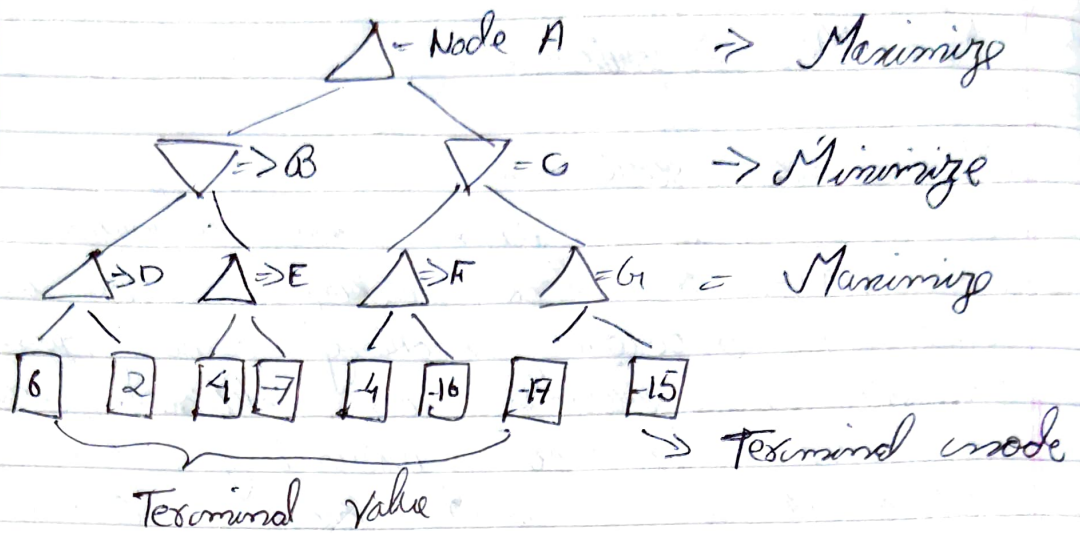 - Node A => Maximize
=> B = C -> Minimize
=> D => E => F = G = Maximize
6 2 4 -7 -4 -16 -17 -15
=> Terminal node
Terminal Value